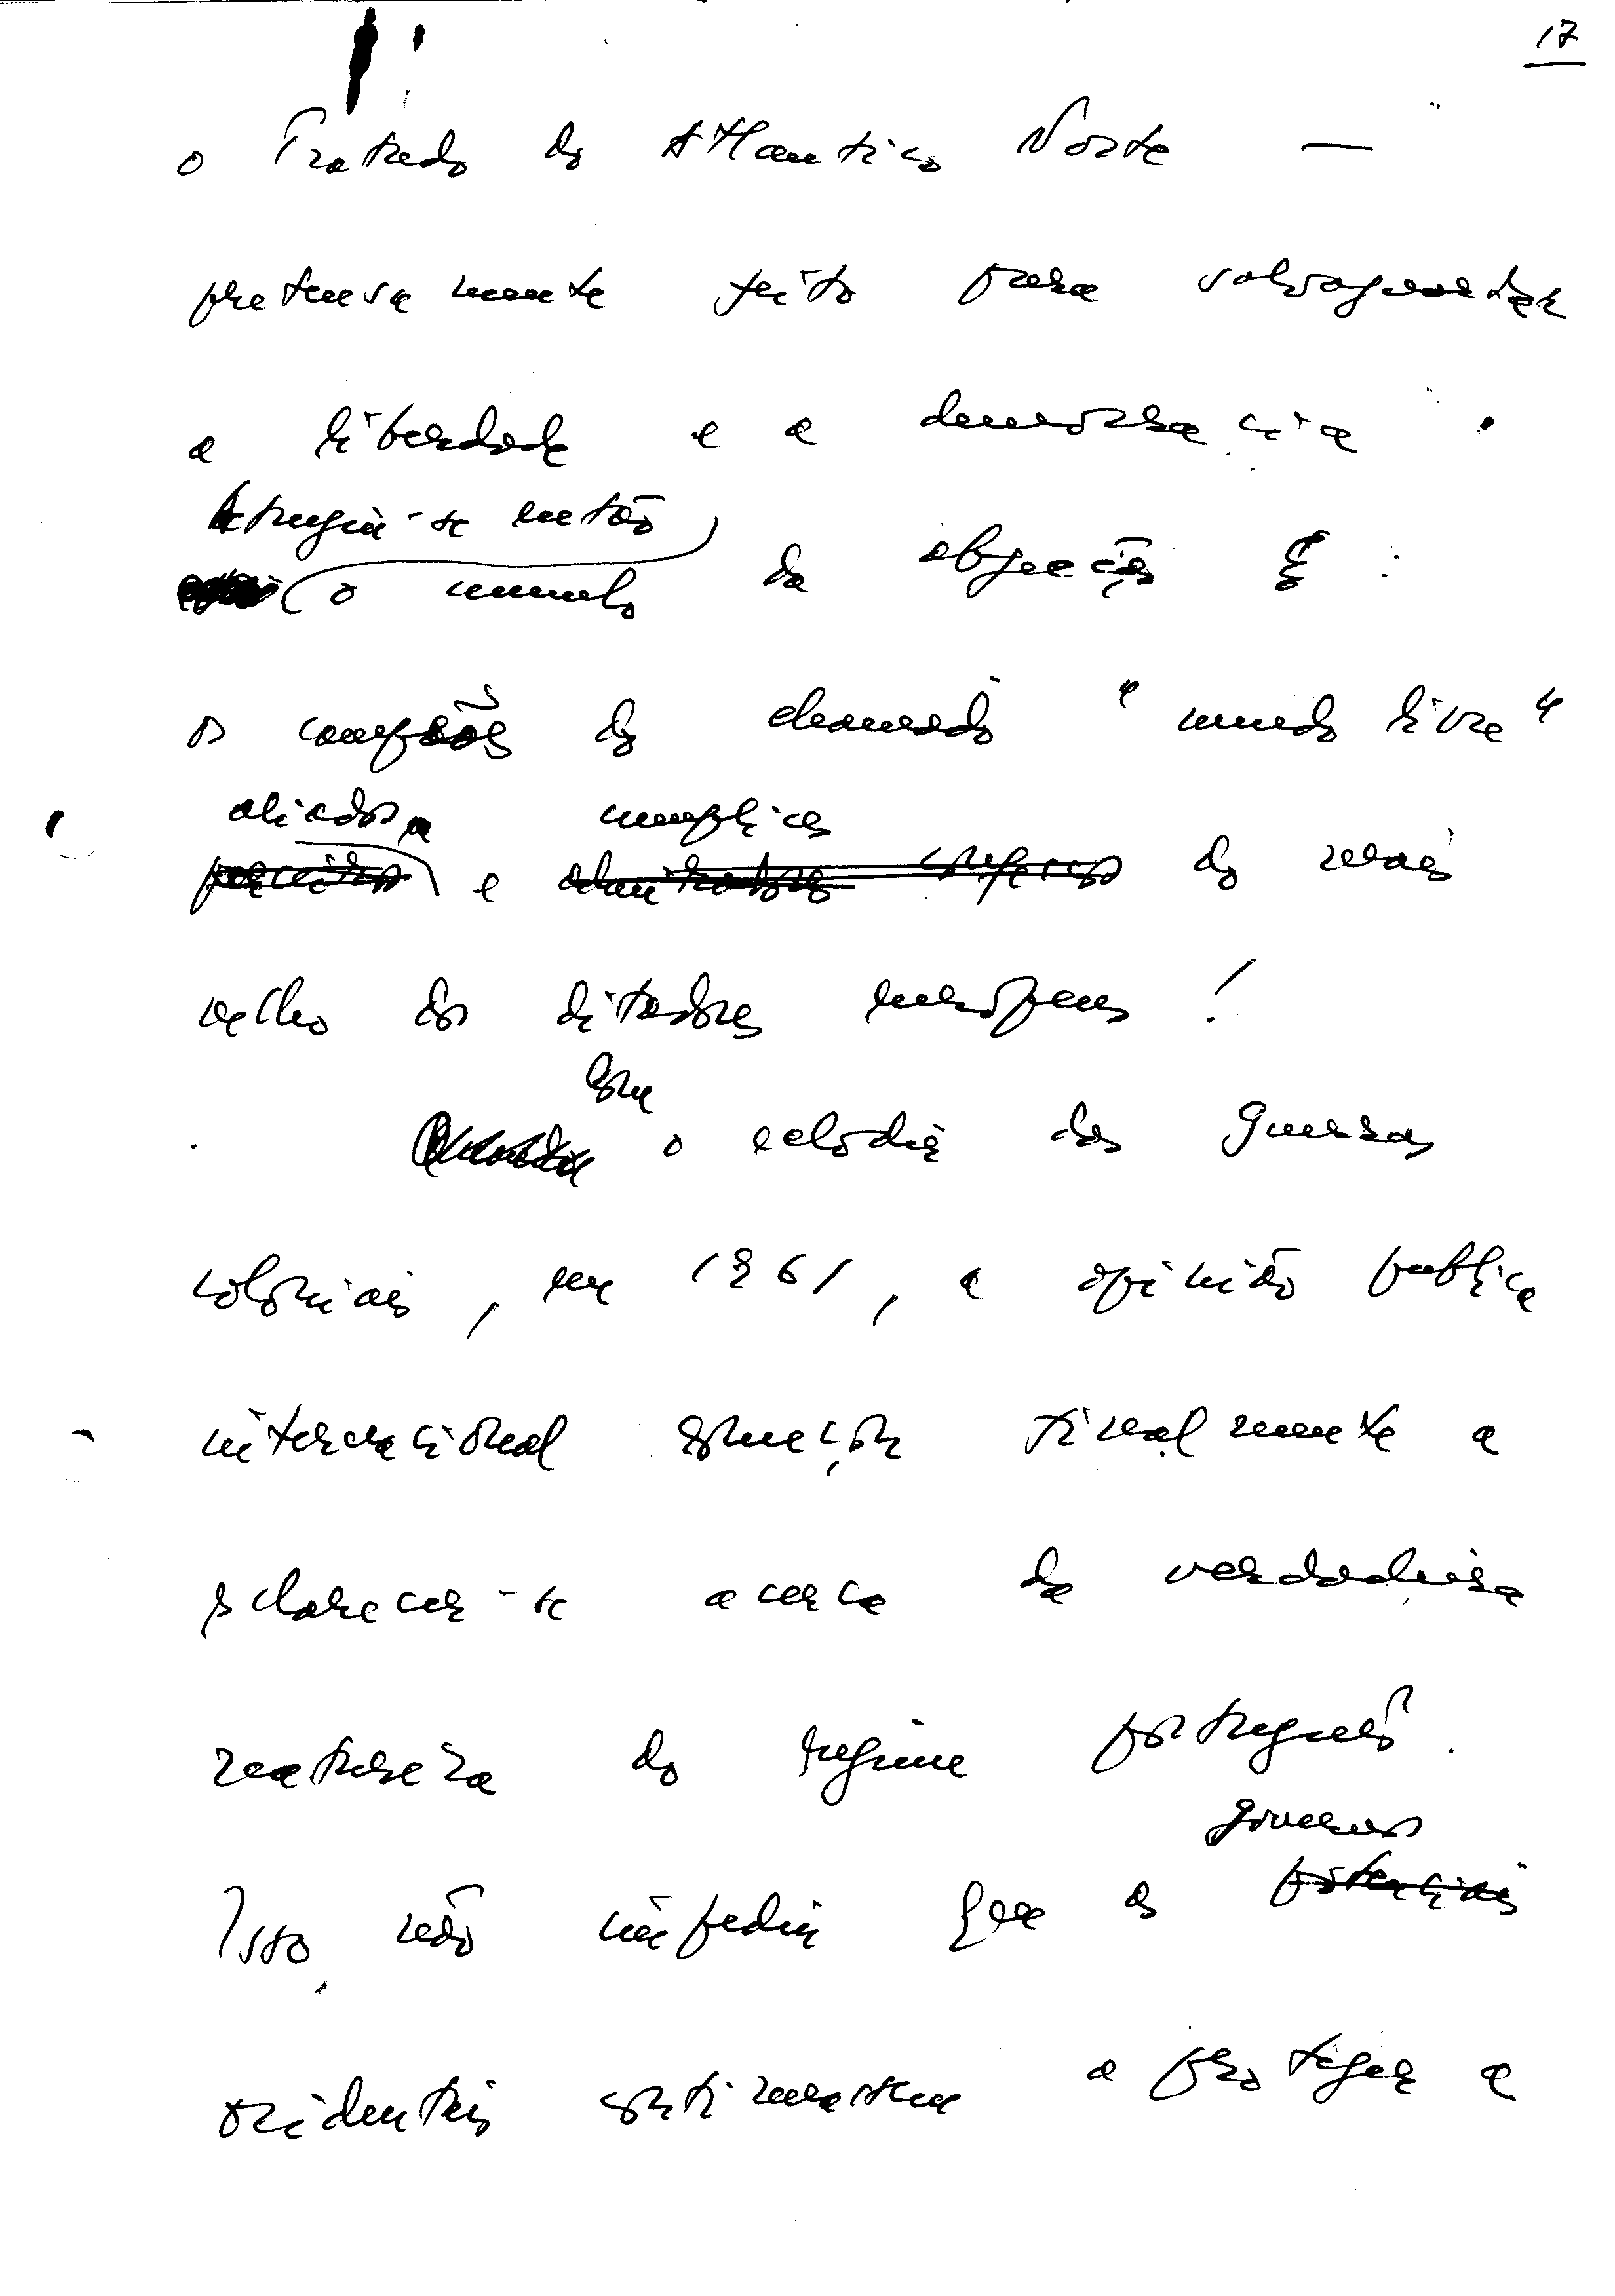 17
o Tratado do Atlantico Norte —
pretensamente feito para salvaguardar
a liberdade e a democracia.
Atingia-se então
o cumulo da abjecção:
os campeões do chamado "mundo livre"
aliados cumplices
e do mais
velho dos ditadores europeus!
Com
o eclodir das guerras
coloniais, em 1961, a opinião publica
internacional começou finalmente a
esclarecer-se acerca da verdadeira
natureza do regime português.
governos
Isso não impediu que os potencias
ocidentais continuassem a proteger a